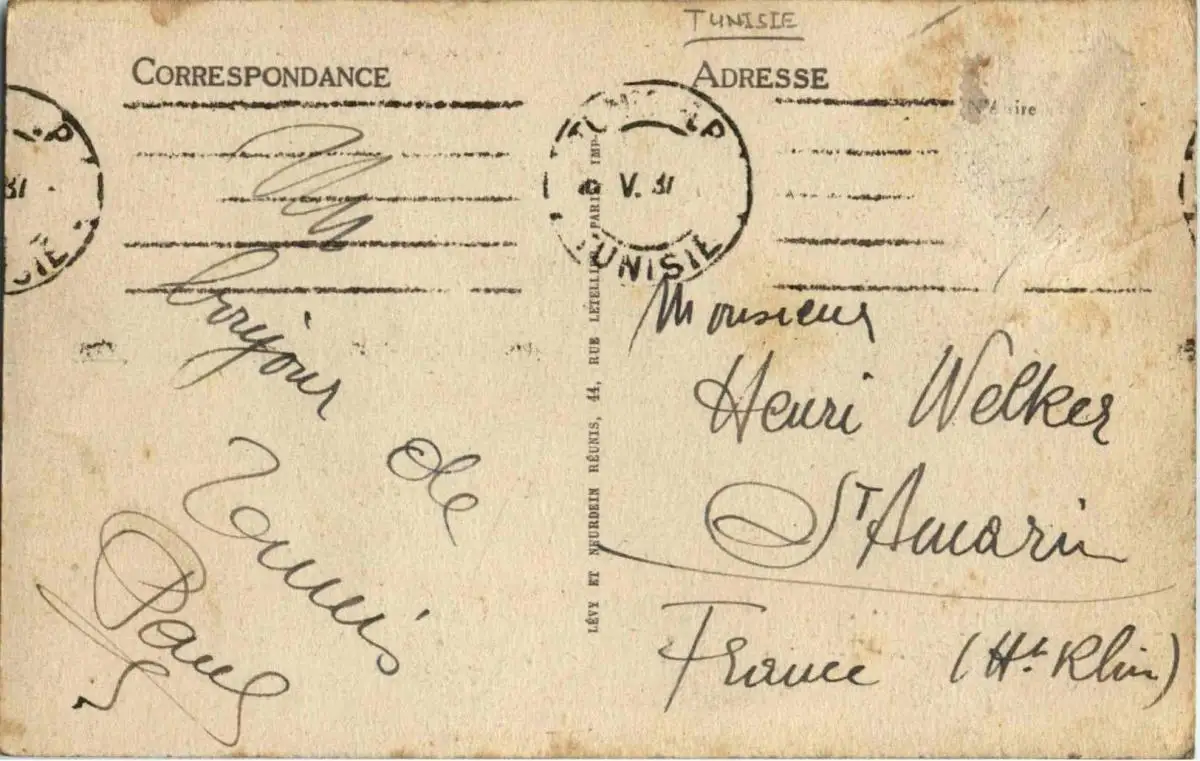 TUNISIE
CORRESPONDANCE
ADRESSE
V. 31
TUNISIE
31
Un
bonjour
de
Tunis
Paul
LÉVY ET NEURDEIN RÉUNIS, 44, RUE LETELLIER, PARIS IMP.
Monsieur
Henri Welker
St Amarin
France (Ht. Rhin)